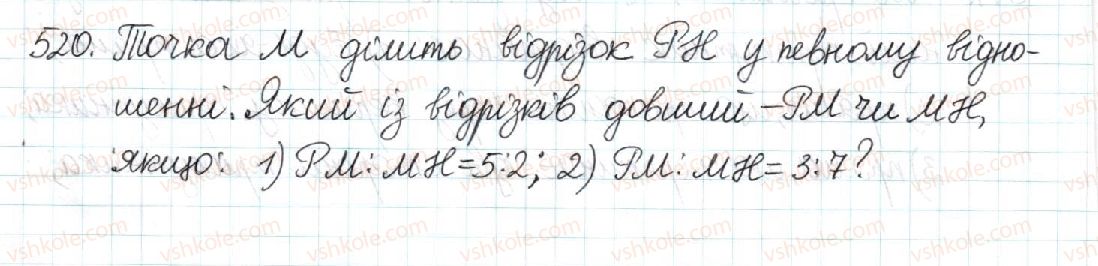 520. Точка М ділить відрізок РН у певному відно-
шенні. Який із відрізків довший – РМ чи МН,
якщо: 1) РМ : МН = 5:2; 2) РМ : МН = 3:7?
vshkole.com